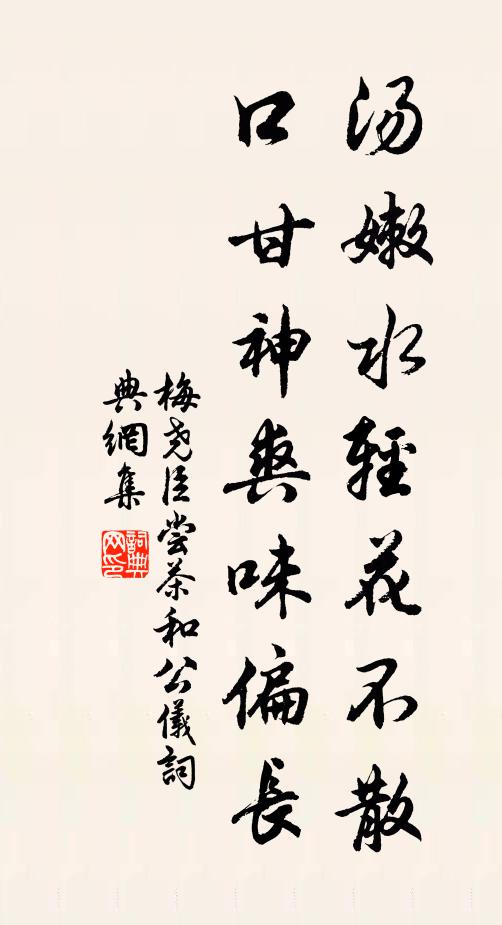 汤嫩水輕花不散
口甘神爽味偏長
梅尧臣尝茶和公儀詞
典網集
詞典网印